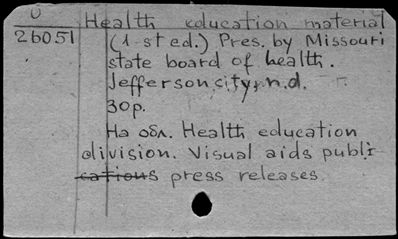 U Health education material
26051 (1-st ed.) Pres. by Missouri
state board of health.
Jefferson city, n.d.
30p.
На обл. Health education
division. Visual aids publi
cations press releases.